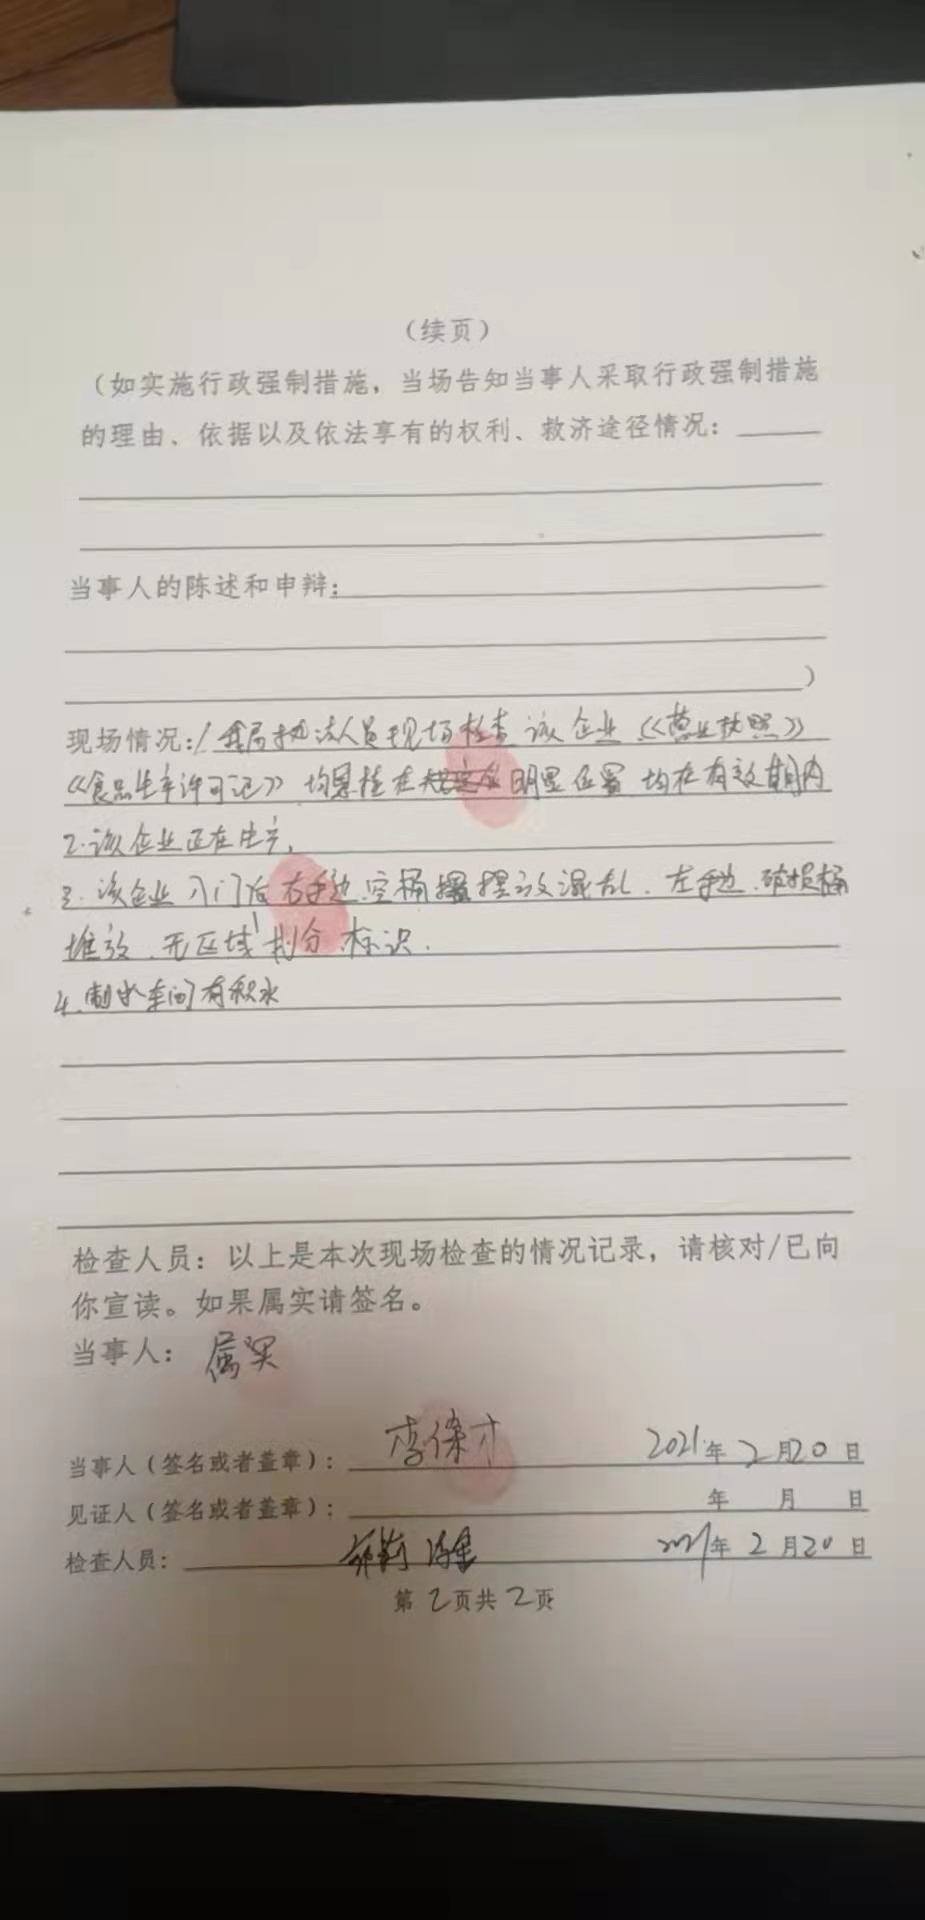 （续页）
（如实施行政强制措施，当场告知当事人采取行政强制措施
的理由、依据以及依法享有的权利、救济途径情况：
当事人的陈述和申辩：
）
现场情况：1.我局执法人员现场检查该企业《营业执照》
《食品生产许可证》均悬挂在明显位置 均在有效期内
2.该企业正在生产，
3.该企业入门后右手边空桶摆放混乱．左手边．破损桶
堆放．无区域划分．标识．
4.制水车间有积水
检查人员：以上是本次现场检查的情况记录，请核对/已向
你宣读。如果属实请签名。
当事人：属实
当事人（签名或者盖章）：李保才 2021年2月20日
见证人（签名或者盖章）： 年 月 日
检查人员： 2021年2月20日
第2页共2页